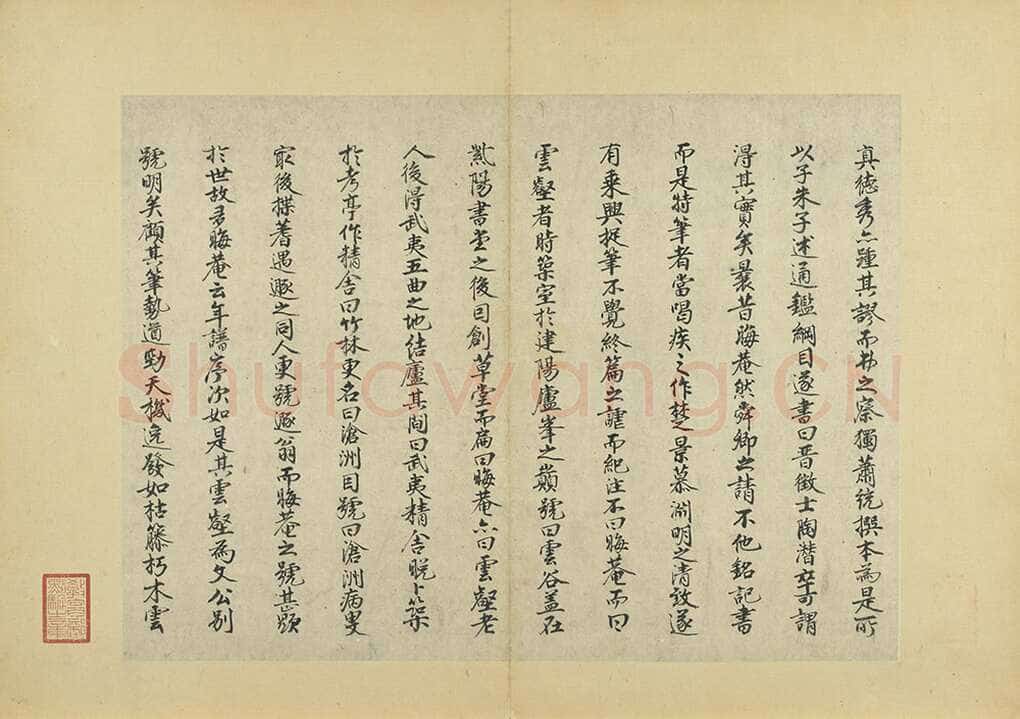 真德秀亦踵其謬而书之察獨蕭統撰本為是所
以子朱子述通鑑綱目遂書曰晋徵士陶潜卒可謂
得其實矣曩昔晦菴然舜卿之請不他銘記書
而是特筆者當唱疾之作楚景慕淵明之清致遂
有乘興捉筆不覺終篇之謔而紀注不曰晦菴而曰
雲壑者時築室扵建陽廬峯之巔號曰雲谷盖在
紫陽書堂之後曰創草堂而扁曰晦菴亦曰雲壑老
人後得武夷五曲之地結廬其間曰武夷精舍晚卜築
扵考亭作精舍曰竹林更名曰滄洲因號曰滄洲病叟
最後楪蓍遇遯之同人更號遯翁而晦菴之號甚顕
扵世故多晦菴云年譜序次如是其雲壑為文公别
號明矣顧其筆勢遒勁天機逸發如枯籐朽木雲
Shufawang.CN